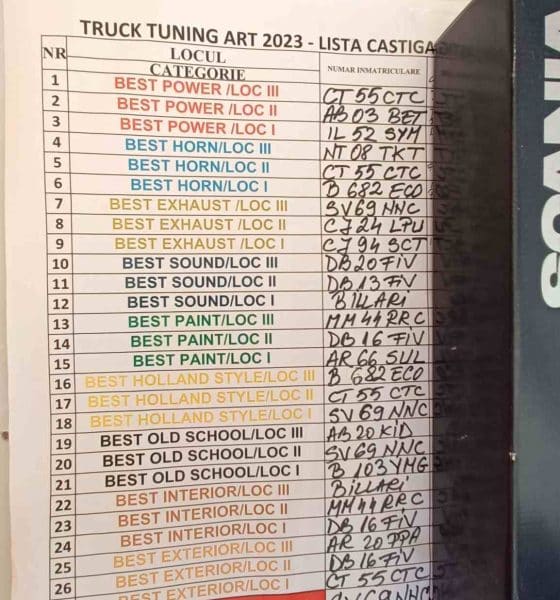 TRUCK TUNING ART 2023 - LISTA CASTIGA
NR LOCUL
CATEGORIE NUMAR INMATRICULARE
1 BEST POWER /LOC III CT 55 CTC
2 BEST POWER /LOC II AB 03 BET
3 BEST POWER /LOC I IL 52 SYM
4 BEST HORN/LOC III NT 08 TKT
5 BEST HORN/LOC II CT 55 CTC
6 BEST HORN/LOC I B 682 ECO
7 BEST EXHAUST /LOC III SV 69 NNC
8 BEST EXHAUST /LOC II CJ 24 LPU
9 BEST EXHAUST /LOC I CJ 94 SCT
10 BEST SOUND/LOC III DB 20 FiV
11 BEST SOUND/LOC II DB 13 FiV
12 BEST SOUND/LOC I BiLLARi
13 BEST PAINT/LOC III MM 44 RRC
14 BEST PAINT/LOC II DB 16 FiV
15 BEST PAINT/LOC I AR 66 SUL
16 BEST HOLLAND STYLE/LOC III B 682 ECO
17 BEST HOLLAND STYLE/LOC II CT 55 CTC
18 BEST HOLLAND STYLE/LOC I SV 69 NNC
19 BEST OLD SCHOOL/LOC III AB 20 KiD
20 BEST OLD SCHOOL/LOC II SV 69 NNC
21 BEST OLD SCHOOL/LOC I B 103 YMG
22 BEST INTERIOR/LOC III BiLLARi
23 BEST INTERIOR/LOC II MM 44 RRC
24 BEST INTERIOR/LOC I DB 16 FiV
25 BEST EXTERIOR/LOC III AR 20 PPA
26 BEST EXTERIOR/LOC II DB 16 FiV
BEST EXTERIOR/LOC I CT 55 CTC
SV 69 NNC
SCANIA